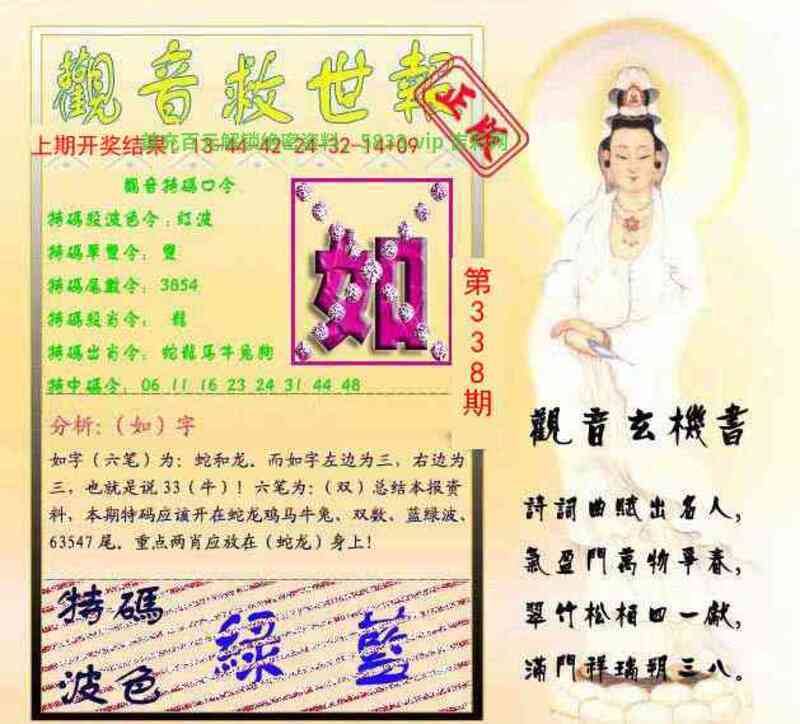 觀音救世報
正版
上期开奖结果:13-44-42-24-32-14+09
觀音特碼口令
特碼段波色令:红波
特碼單雙令:雙
特碼尾數令:3854
特碼段肖令:龍
特碼出肖令:蛇龍馬牛兔狗
特中碼令:06 11 16 23 24 31 44 48
如
第338期
分析:(如)字
如字(六笔)为:蛇和龙.而如字左边为三,右边为
三,也就是说33(牛)!六笔为:(双)总结本报资
料,本期特码应该开在蛇龙鸡马牛兔、双数、蓝绿波、
63547尾.重点两肖应放在(蛇龙)身上!
特碼
波色
綠 藍
觀音玄機書
詩詞曲赋出名人,
氣盈門萬物爭春,
翠竹松栢四一獻,
滿門祥瑞朔三八。